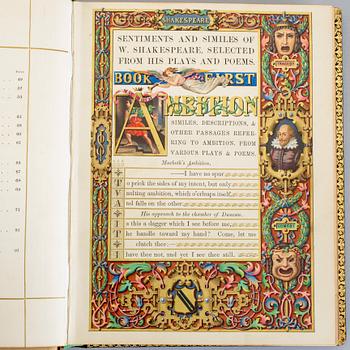 SHAKESPEARE
SENTIMENTS AND SIMILES OF
W. SHAKESPEARE, SELECTED
FROM HIS PLAYS AND POEMS.
BOOK FIRST
AMBITION
SIMILES, DESCRIPTIONS, &
OTHER PASSAGES REFER-
RING TO AMBITION, FROM
VARIOUS PLAYS & POEMS.
Macbeth's Ambition.
—I have no spur
To prick the sides of my intent, but only
Vaulting ambition, which o'erleaps itself,
And falls on the other
His approach to the chamber of Duncan.
Is this a dagger which I see before me,
The handle toward my hand? Come, let me
clutch thee:—
I have thee not, and yet I see thee still.
TRAGEDY
COMEDY